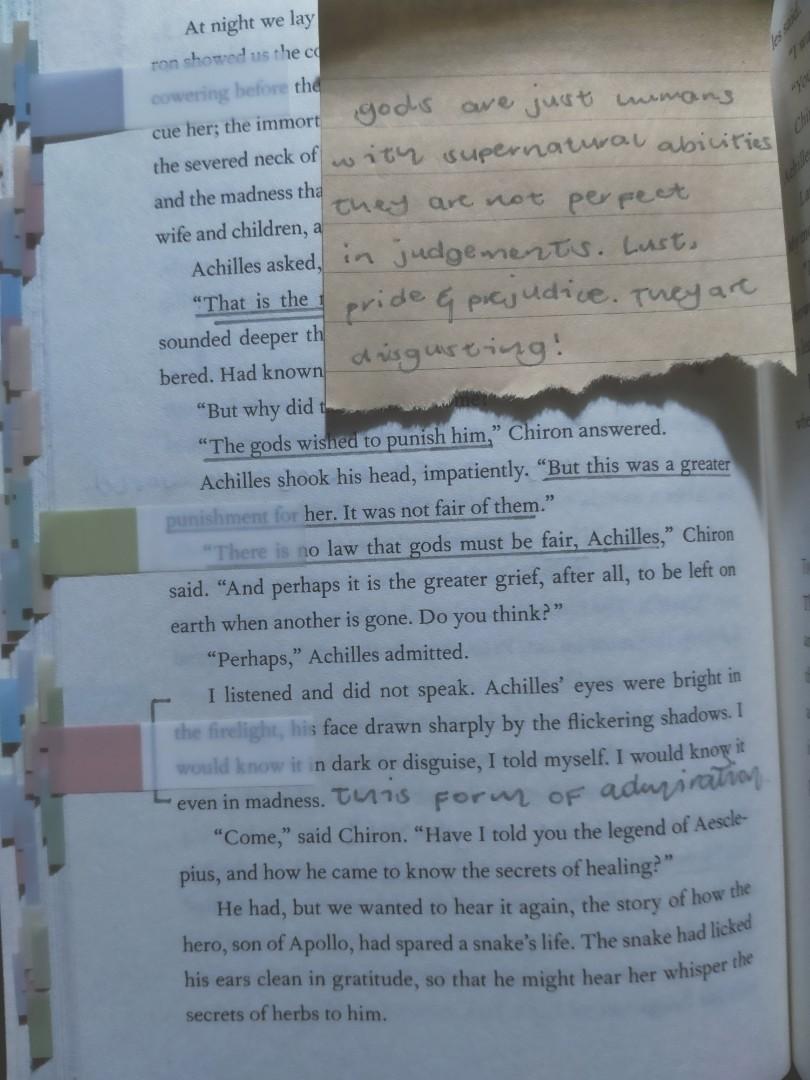 At night we lay
ron showed us the co
cowering before the
cue her; the immort
the severed neck of
and the madness tha
wife and children, a
Achilles asked,
“That is the
sounded deeper th
bered. Had known
“But why did t
me?”
“The gods wished to punish him,” Chiron answered.
Achilles shook his head, impatiently. “But this was a greater
punishment for her. It was not fair of them.”
“There is no law that gods must be fair, Achilles,” Chiron
said. “And perhaps it is the greater grief, after all, to be left on
earth when another is gone. Do you think?”
“Perhaps,” Achilles admitted.
I listened and did not speak. Achilles’ eyes were bright in
the firelight, his face drawn sharply by the flickering shadows. I
would know it in dark or disguise, I told myself. I would know it
even in madness. This form of admiration
“Come,” said Chiron. “Have I told you the legend of Aescle-
pius, and how he came to know the secrets of healing?”
He had, but we wanted to hear it again, the story of how the
hero, son of Apollo, had spared a snake’s life. The snake had licked
his ears clean in gratitude, so that he might hear her whisper the
secrets of herbs to him.
gods are just humans
with supernatural abilities
they are not perfect
in judgements. Lust,
pride & prejudice. They are
disgusting!